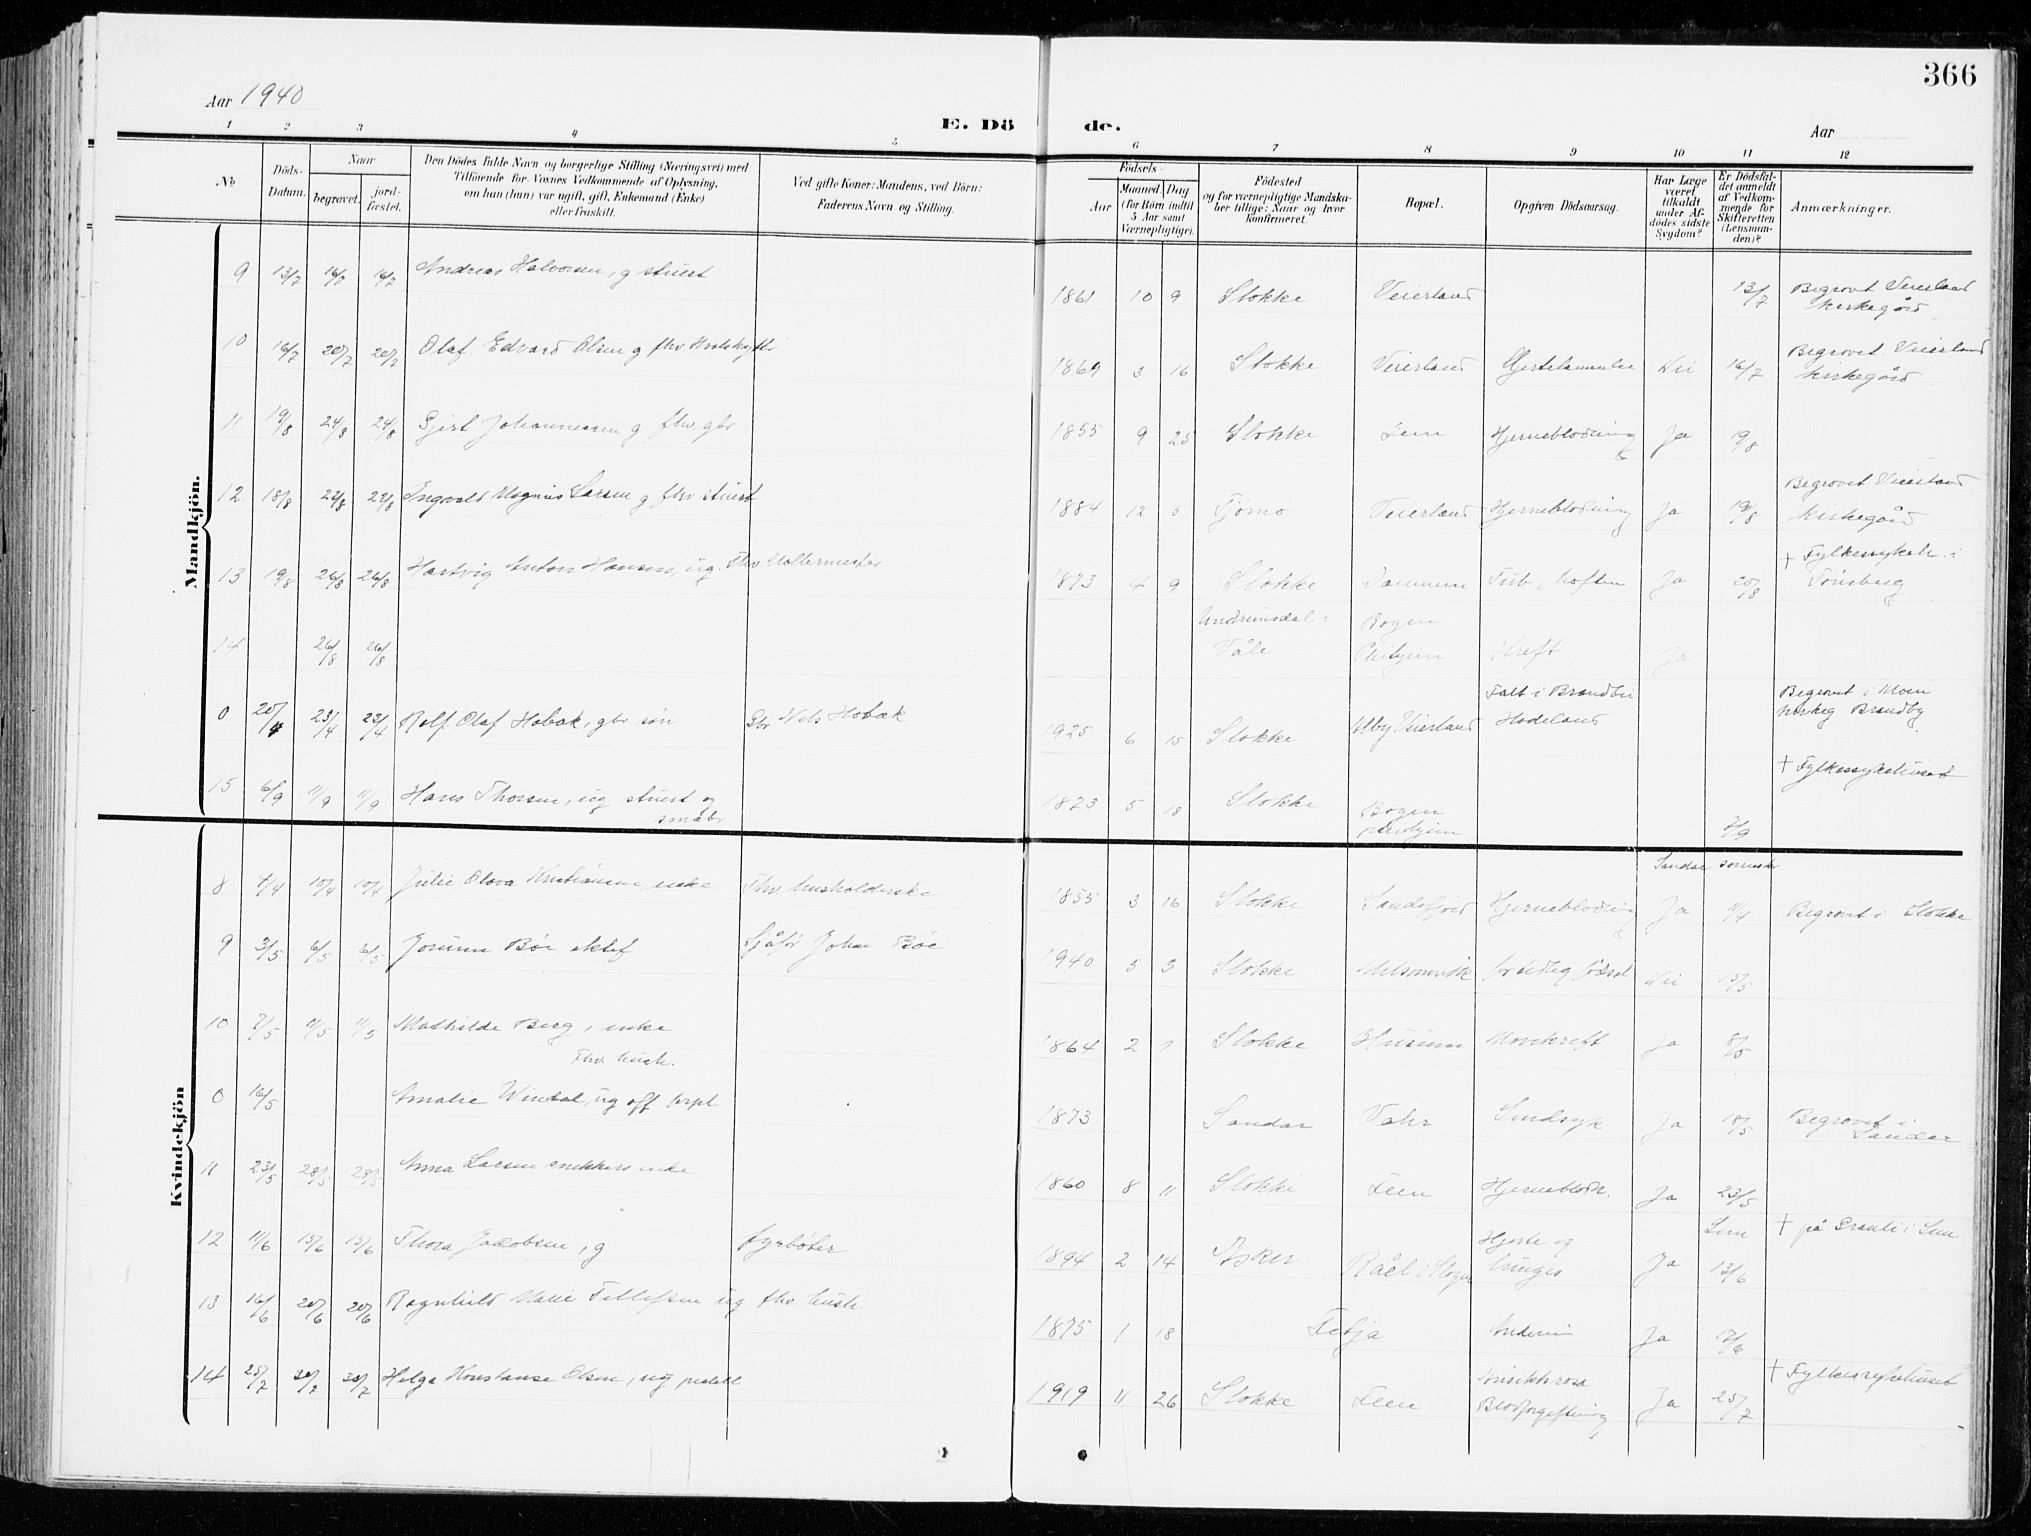 366
Aar 1940
E. Döde.
Aar
1 2 3 4 5 6 7 8 9 10 11 12
No
Döds-Datum.
Naar
begravet.
jord-fæstet.
Den Dödes fulde Navn og borgerlige Stilling (Næringsvei) med
Tilföiende for Voxnes Vedkommende af Oplysning,
om han (hun) var ugift, gift, Enkemand (Enke)
eller fraskilt.
Ved gifte Koner: Mandens, ved Börn:
Faderens Navn og Stilling.
Födsels-
Aar
Maaned. Dag
(for Börn indtil
5 Aar samt
Værnepligtige).
Födested
og for værnepligtige Mandska-
ber tillige: Naar og hvor
konfirmeret.
Bopæl.
Opgiven Dödsaarsag.
Har Læge
været
tilkaldt
under Af-
dödes sidste
Sygdom?
Er Dödsfal-
det anmeldt
af Vedkom-
mende for
Skifteretten
(Lensman-
den)?
Anmærkninger.
Mandkjön.
9 13/7 14/7 14/7 Andreas Halvorsen, g stuert 1861 10 9 Stokke Veierland 13/7 Begravet Veierland
kirkegård
10 16/7 20/7 20/7 Olaf Edvard Olsen g fhv. 1869 3 16 Stokke Veierland Hjertelammelse Nei 16/7 Begravet Veierland
kirkegård
11 19/8 24/8 24/8 Gjert Johannessen g fhv. gbr 1855 9 25 Stokke Feen Hjerneblödning Ja 19/8
12. 18/8 22/8 22/8 Ingvald Magnus Larsen g fhv stuert 1884 12 5 Tjömö Veierland Hjerneblödning Ja 19/8 Begravet Veierland
kirkegård
13 19/8 26/8 26/8 Hartvig Anton Hansen, ug. Fhv. Matermester 1873 4 9 Stokke Tub. i hoften Ja 20/8 + Fylkessykeh. i
Tönsberg
14 26/8 26/8 Undrumsdal i
Våle Bogen
Pleihjem Kreft Ja
0 20/4 23/4 23/4 Rolf Olaf Hobæk, gbr sön Gbr Nels Hobæk 1925 6 15 Stokke Veierland Falt i Brandbu
Hadeland Begravet i Moen
kirkeg Brandby
15 6/9 11/9 11/9 Hans Thorsen, ug stuert og
småbr 1873 5 18 Stokke Bogen
pleihjem 7/9 + Fylkessykehuset
Kvindekjön
8 4/4 10/4 10/4 Julie Olava Kristiansen, enke Fhv husholderske 1855 3 16 Stokke Sandefjord Hjerneblödning Ja Sandar 11/4 Begravet i Stokke
9 3/5 6/5 6/5 Jorunn Böe ektef Sjåför Johan Böe 1940 5 3 Stokke Melsomvik for tidlig födsel Nei 15/5
10 7/5 11/5 11/5 Mathilde Berg, enke
Fhv. hush. 1864 2 1 Stokke Husum Mavekreft Ja 8/5
0 16/5 Amalie Windal, ug off forpl 1873 Sandar Vahr Sindsyk Ja 18/5 Begravet i
Sandar
11 23/5 28/5 28/5 Anna Larsen snekkers enke 1860 8 11 Stokke Feen Hjerneblödn. Ja 23/5
12 11/6 15/6 15/6 Thora Jacobsen, g fyrböter 1894 2 14 Asker Råel i Slagen Hjerte og
lunger Ja Sem
13/6 + på Granli i Sem
13 16/6 20/6 20/6 Ragnhild Marie Tellefsen ug fhv. hush. 1875 1 18 Feója Ja 17/6
14 25/7 30/7 30/7 Helga Konstanse Olsen, ug 1919 11 26 Stokke Feen Ansiktsrosa
Blodforgiftning Ja 25/7 + Fylkessykehuset